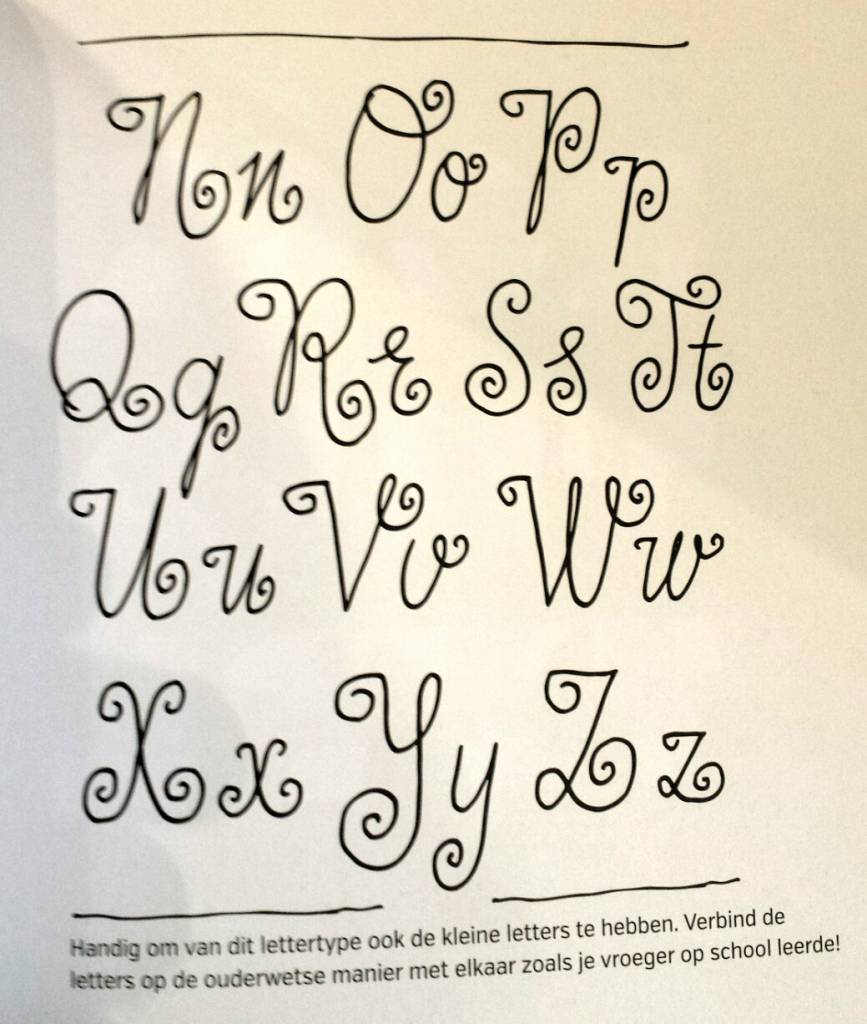 Nn Oo Pp
Qq Rr Ss Tt
Uu Vv Ww
Xx Yy Zz
Handig om van dit lettertype ook de kleine letters te hebben. Verbind de
letters op de ouderwetse manier met elkaar zoals je vroeger op school leerde!